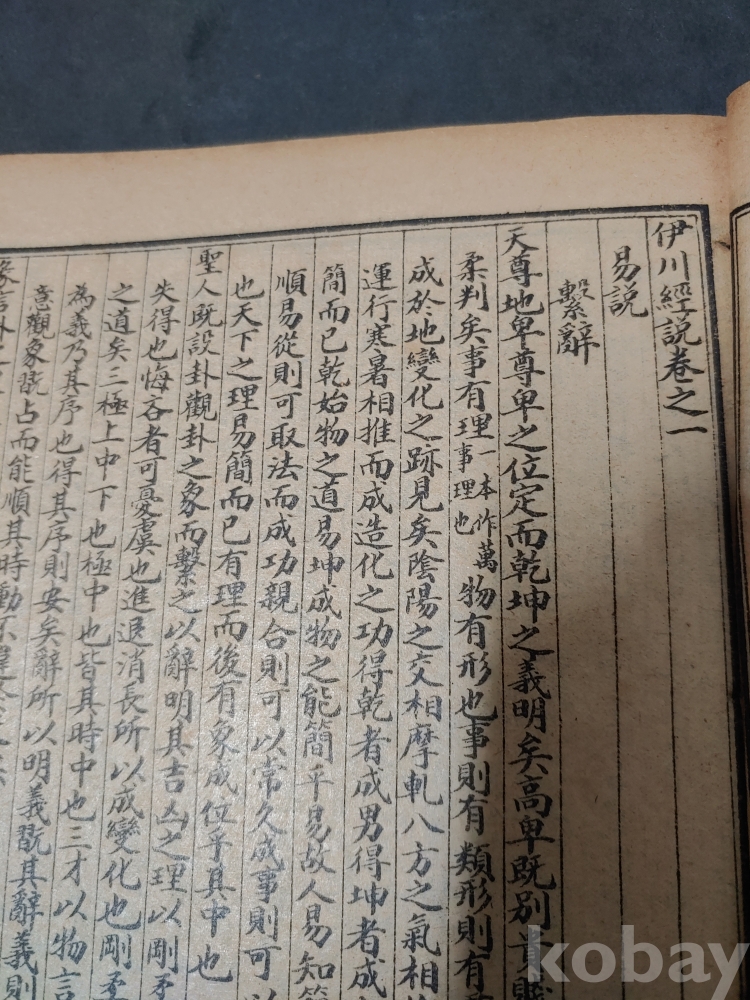 伊川經說卷之一
易說
繫辭
天尊地卑尊卑之位定而乾坤之義明矣高卑既別貴賤
柔判矣事有理一本作萬事理也物有形也事則有類形則有
成於地變化之跡見矣陰陽之交相摩軋八方之氣相
運行寒暑相推而成造化之功得乾者成男得坤者成
簡而已乾始物之道易坤成物之能簡乎易故人易知簡
順易從則可取法而成功親合則可以常久成事則可以
也天下之理易簡而已有理而後有象成位乎其中也
聖人既設卦觀卦之象而繫之以辭明其吉凶之理以剛柔
失得也悔吝者可憂虞也進退消長所以成變化也剛柔
之道矣三極上中下也極中也皆其時中也三才以物言
為義乃其序也得其序則安矣辭所以明義既其辭義則
意觀象既占而能順其時動不
象言卦
kobay